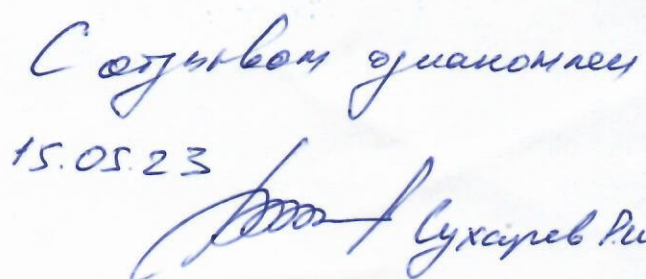 С отзывом ознакомлен
15.05.23
Сухарев Р.И